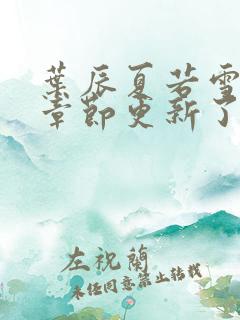 葉辰夏若雪
章節更新了
左祝蘭
未經同意禁止轉載